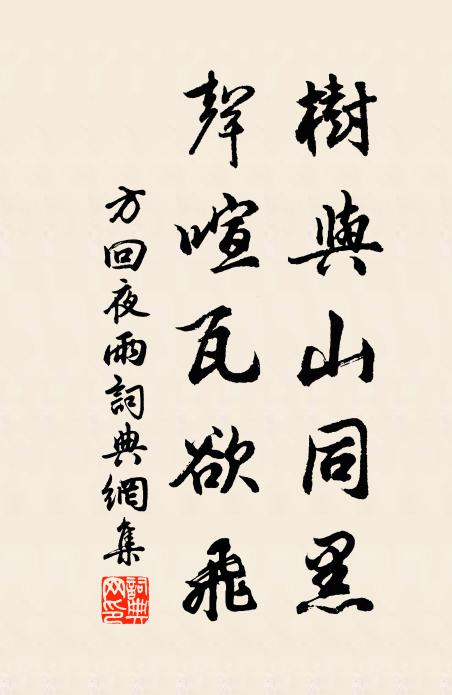 樹與山同黑
聲喧瓦欲飛
方回夜雨詞典網集
詞典网印